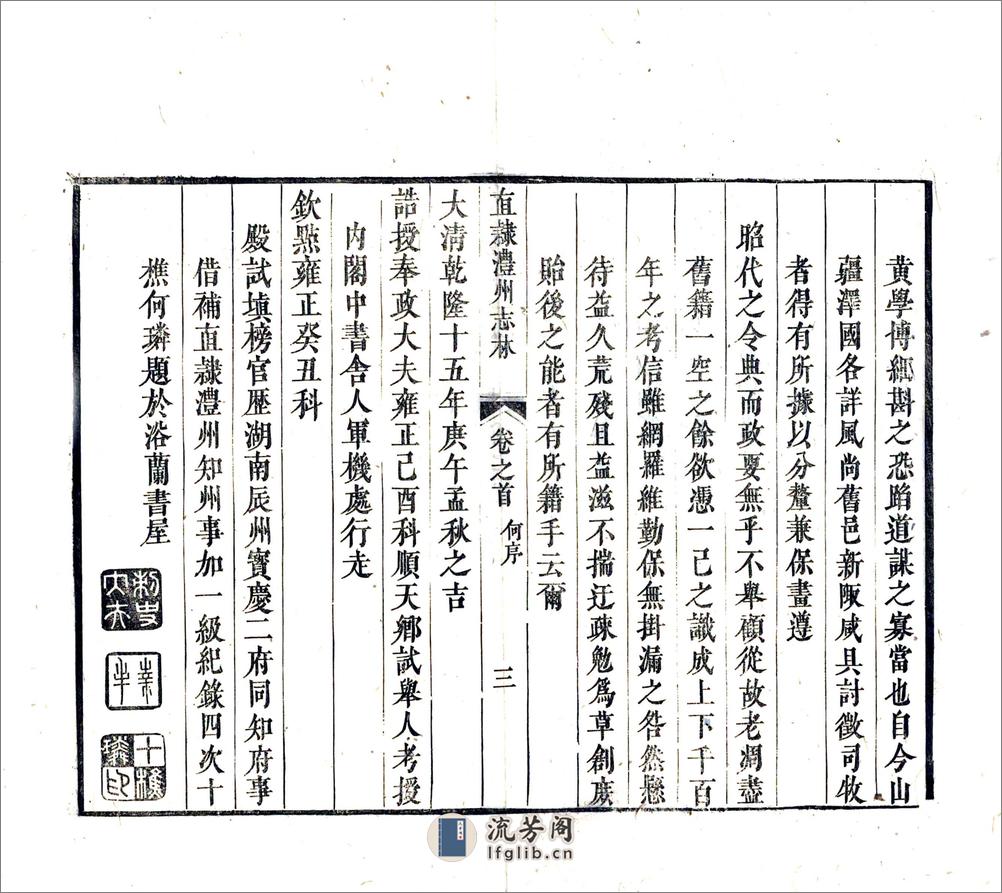 黃學傅經斟之恐蹈道謀之寡當也自今山
疆澤國各詳風尚舊邑新陬咸具討徵司牧
者得有所據以分釐兼保畫遵
昭代之令典而政要無乎不舉顧從故老凋盡
舊籍一空之餘欲憑一己之識成上下千百
年之考信雖網羅維勤保無掛漏之咎然懸
待益久荒殘且益滋不揣迂疎勉為草創庶
貽後之能者有所籍手云爾
直隸澧州志林 卷之首 何序 三
大清乾隆十五年庚午孟秋之吉
誥授奉政大夫雍正己酉科順天鄉試舉人考授
內閣中書舍人軍機處行走
欽點雍正癸丑科
殿試填榜官歷湖南辰州寶慶二府同知府事
借補直隸澧州知州事加一級紀錄四次十
樵何璘題於浴蘭書屋
流芳阁
lfglib.cn